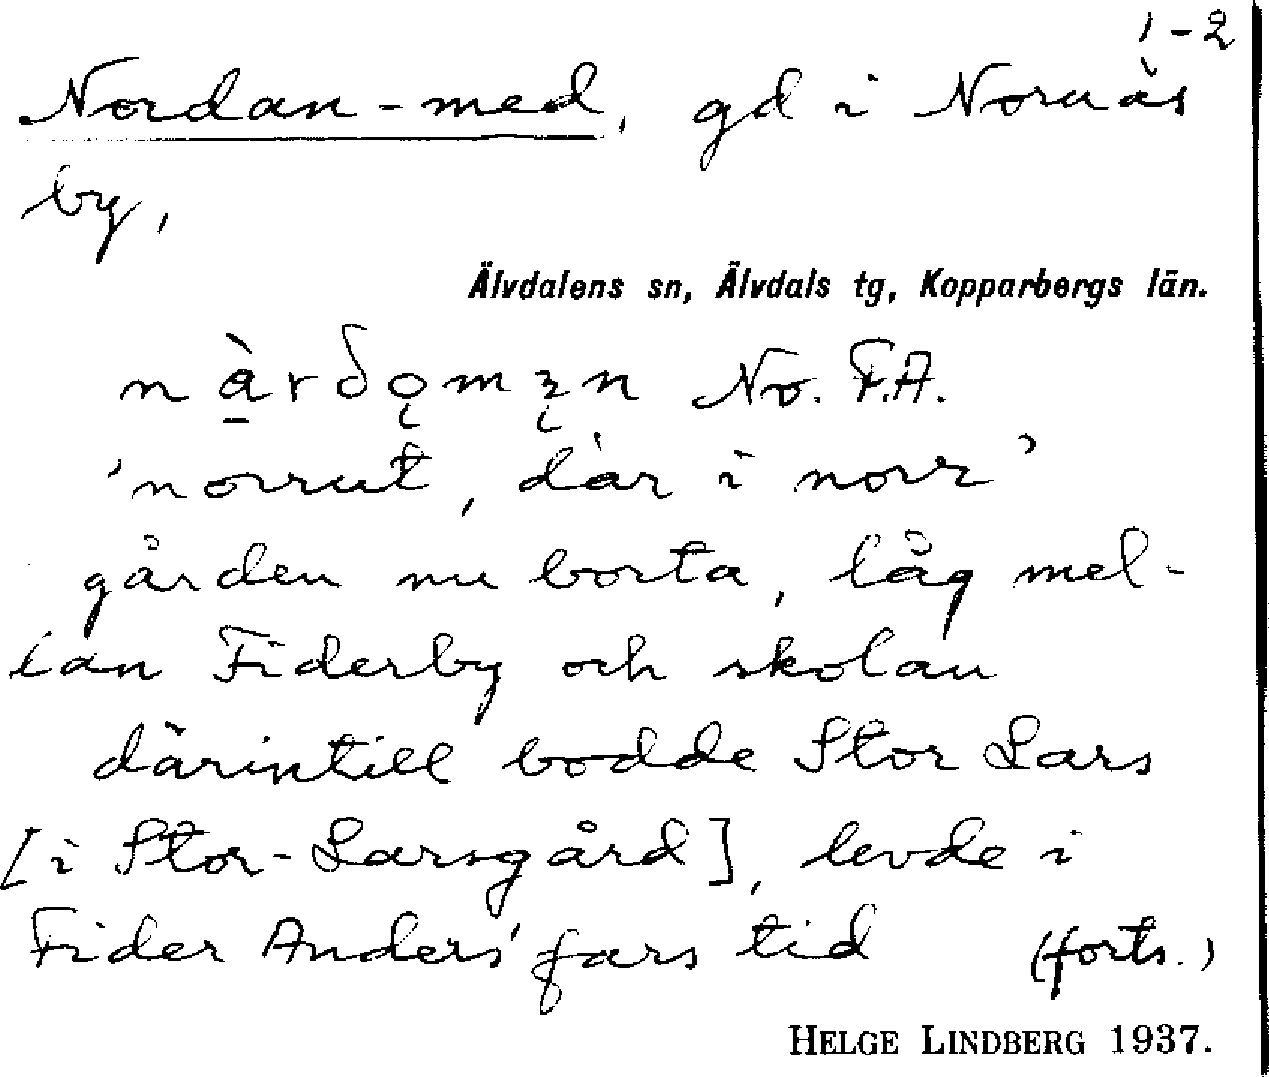 1-2
Nordan-med, gd i Nornäs
by,
Älvdalens sn, Älvdals tg, Kopparbergs län.
nà̱rðo̜mɜ̨n No. F.A.
'norrut, där i norr'
gården nu borta, låg mel-
lan Fiderby och skolan
därintill bodde Stor Lars
[i Stor-Larsgård], levde i
Fider Anders' fars tid (forts.)
HELGE LINDBERG 1937.